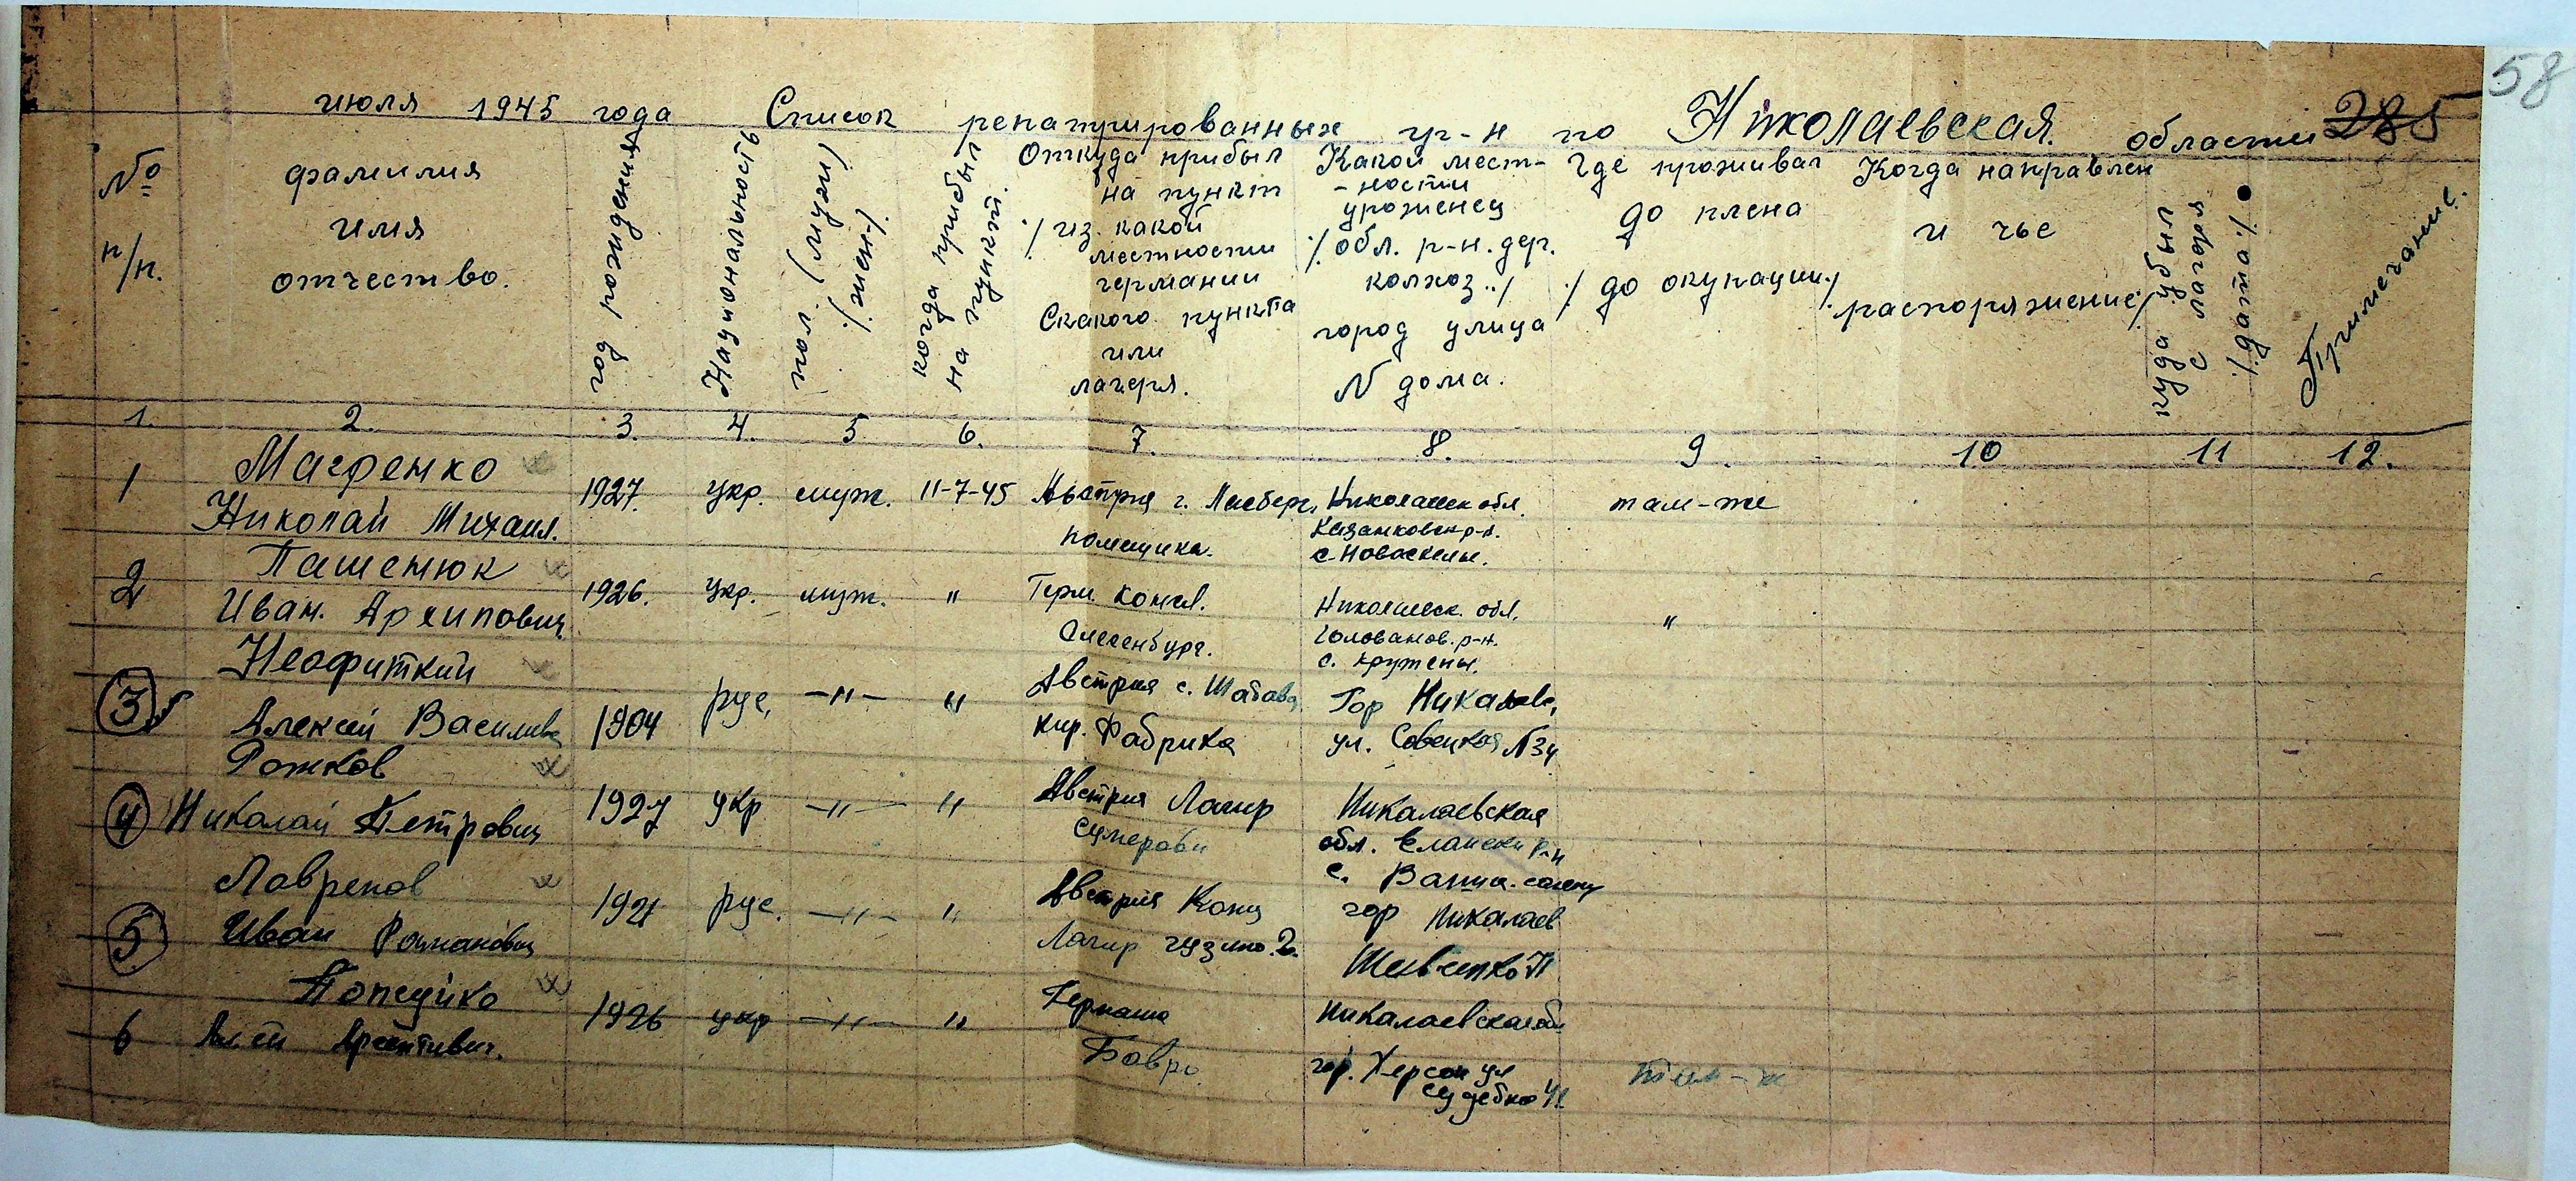 58
июля 1945 года Список репатрированных гр-н по Николаевская области 285
№ п/п.
фамилия
имя
отчество.
год рождения
Национальность
пол. /мужч/
/.жен./
когда прибыл
на пункт.
Откуда прибыл
на пункт
/из. какой
местности
германии
Скакого пункта
или
лагеря.
Какой мест-
-ности
уроженец
/. обл. р-н. дер.
колхоз../
город улица
N дома.
Где проживал
до плена
/ до окупации./
Когда направлен
и чье
распоряжение/
куда убыл
с погода
/.дата./
Примечание.
1. 2. 3. 4. 5 6. 7. 8. 9. 10 11 12.
1 Магренко
Николай Михаил. 1927. укр. муж. 11-7-45 Австрия г. Ласберг, Николаевск обл. там-же
помещика. Казанковск р-н.
с-Новоскелы.
2 Пашенюк
Иван. Архипович 1926. укр. муж. " Герм. концл. Николаевск. обл. "
Флесенбург. Голованов. р-н.
с. Кружены.
3 Неофиткий
Алексей Василивч 1904 рус, -"- " Австрия с. Шабава Гор Никалаев,
кир. Фабрика ул. Совецкая N34
4 Рожков
Николай Петрович 1927 укр -"- " Австрия Лагир Никалаевская
обл. Елански р-н
с.
5 Лавренов
Иван Романович 1921 рус. -"- " Австрия Конц гор Никалаев
Лагир гузино. 2. Шевченко
6 Попещико
Арсентивич. 1926 укр -"- " Германия Никалаевская об
Бавр гор. Херсон ул там-ж